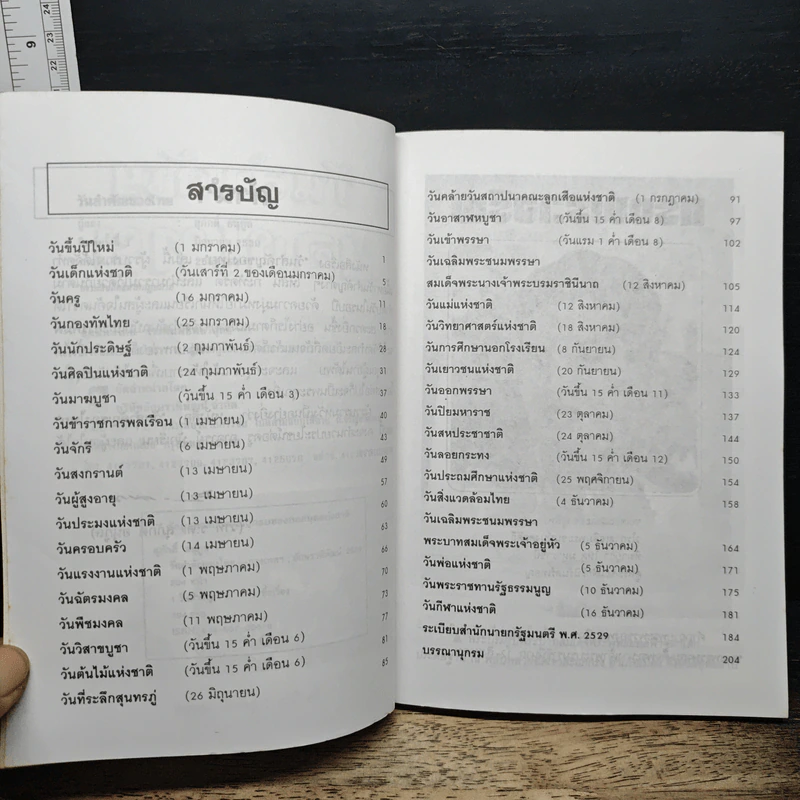 9
24
23
22
สารบัญ
วันขึ้นปีใหม่ (1 มกราคม) 1
วันเด็กแห่งชาติ (วันเสาร์ที่ 2 ของเดือนมกราคม) 5
วันครู (16 มกราคม) 11
วันกองทัพไทย (25 มกราคม) 18
วันนักประดิษฐ์ (2 กุมภาพันธ์) 28
วันศิลปินแห่งชาติ (24 กุมภาพันธ์) 31
วันมาฆบูชา (วันขึ้น 15 ค่ำ เดือน 3) 37
วันข้าราชการพลเรือน (1 เมษายน) 40
วันจักรี (6 เมษายน) 43
วันสงกรานต์ (13 เมษายน) 49
วันผู้สูงอายุ (13 เมษายน) 57
วันประมงแห่งชาติ (13 เมษายน) 60
วันครอบครัว (14 เมษายน) 63
วันแรงงานแห่งชาติ (1 พฤษภาคม) 66
วันฉัตรมงคล (5 พฤษภาคม) 70
วันพืชมงคล (11 พฤษภาคม) 73
วันวิสาขบูชา (วันขึ้น 15 ค่ำ เดือน 6) 77
วันต้นไม้แห่งชาติ (วันขึ้น 15 ค่ำ เดือน 6) 81
วันที่ระลึกสุนทรภู่ (26 มิถุนายน) 85
วันคล้ายวันสถาปนาคณะลูกเสือแห่งชาติ (1 กรกฎาคม) 91
วันอาสาฬหบูชา (วันขึ้น 15 ค่ำ เดือน 8) 97
วันเข้าพรรษา (วันแรม 1 ค่ำ เดือน 8) 102
วันเฉลิมพระชนมพรรษา
สมเด็จพระนางเจ้าพระบรมราชินีนาถ (12 สิงหาคม) 105
วันแม่แห่งชาติ (12 สิงหาคม) 114
วันวิทยาศาสตร์แห่งชาติ (18 สิงหาคม) 120
วันการศึกษานอกโรงเรียน (8 กันยายน) 124
วันเยาวชนแห่งชาติ (20 กันยายน) 129
วันออกพรรษา (วันขึ้น 15 ค่ำ เดือน 11) 133
วันปิยมหาราช (23 ตุลาคม) 137
วันสหประชาชาติ (24 ตุลาคม) 144
วันลอยกระทง (วันขึ้น 15 ค่ำ เดือน 12) 150
วันประถมศึกษาแห่งชาติ (25 พฤศจิกายน) 154
วันสิ่งแวดล้อมไทย (4 ธันวาคม) 158
วันเฉลิมพระชนมพรรษา
พระบาทสมเด็จพระเจ้าอยู่หัว (5 ธันวาคม) 164
วันพ่อแห่งชาติ (5 ธันวาคม) 171
วันพระราชทานรัฐธรรมนูญ (10 ธันวาคม) 175
วันกีฬาแห่งชาติ (16 ธันวาคม) 181
ระเบียบสำนักนายกรัฐมนตรี พ.ศ. 2529 184
บรรณานุกรม 204